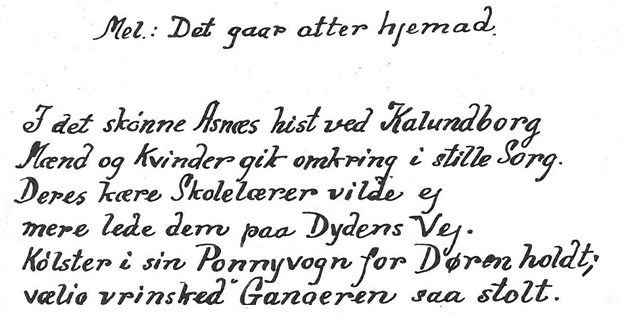 Mel.: Det gaar atter hjemad.
I det skønne Asnæs hist ved Kalundborg
Mænd og Kvinder gik omkring i stille Sorg.
Deres kære Skolelærer vilde ej
mere lede dem paa Dydens Vej.
Kølster i sin Ponnyvogn for Døren holdt;
vælig vrinsked' Gangeren saa stolt.